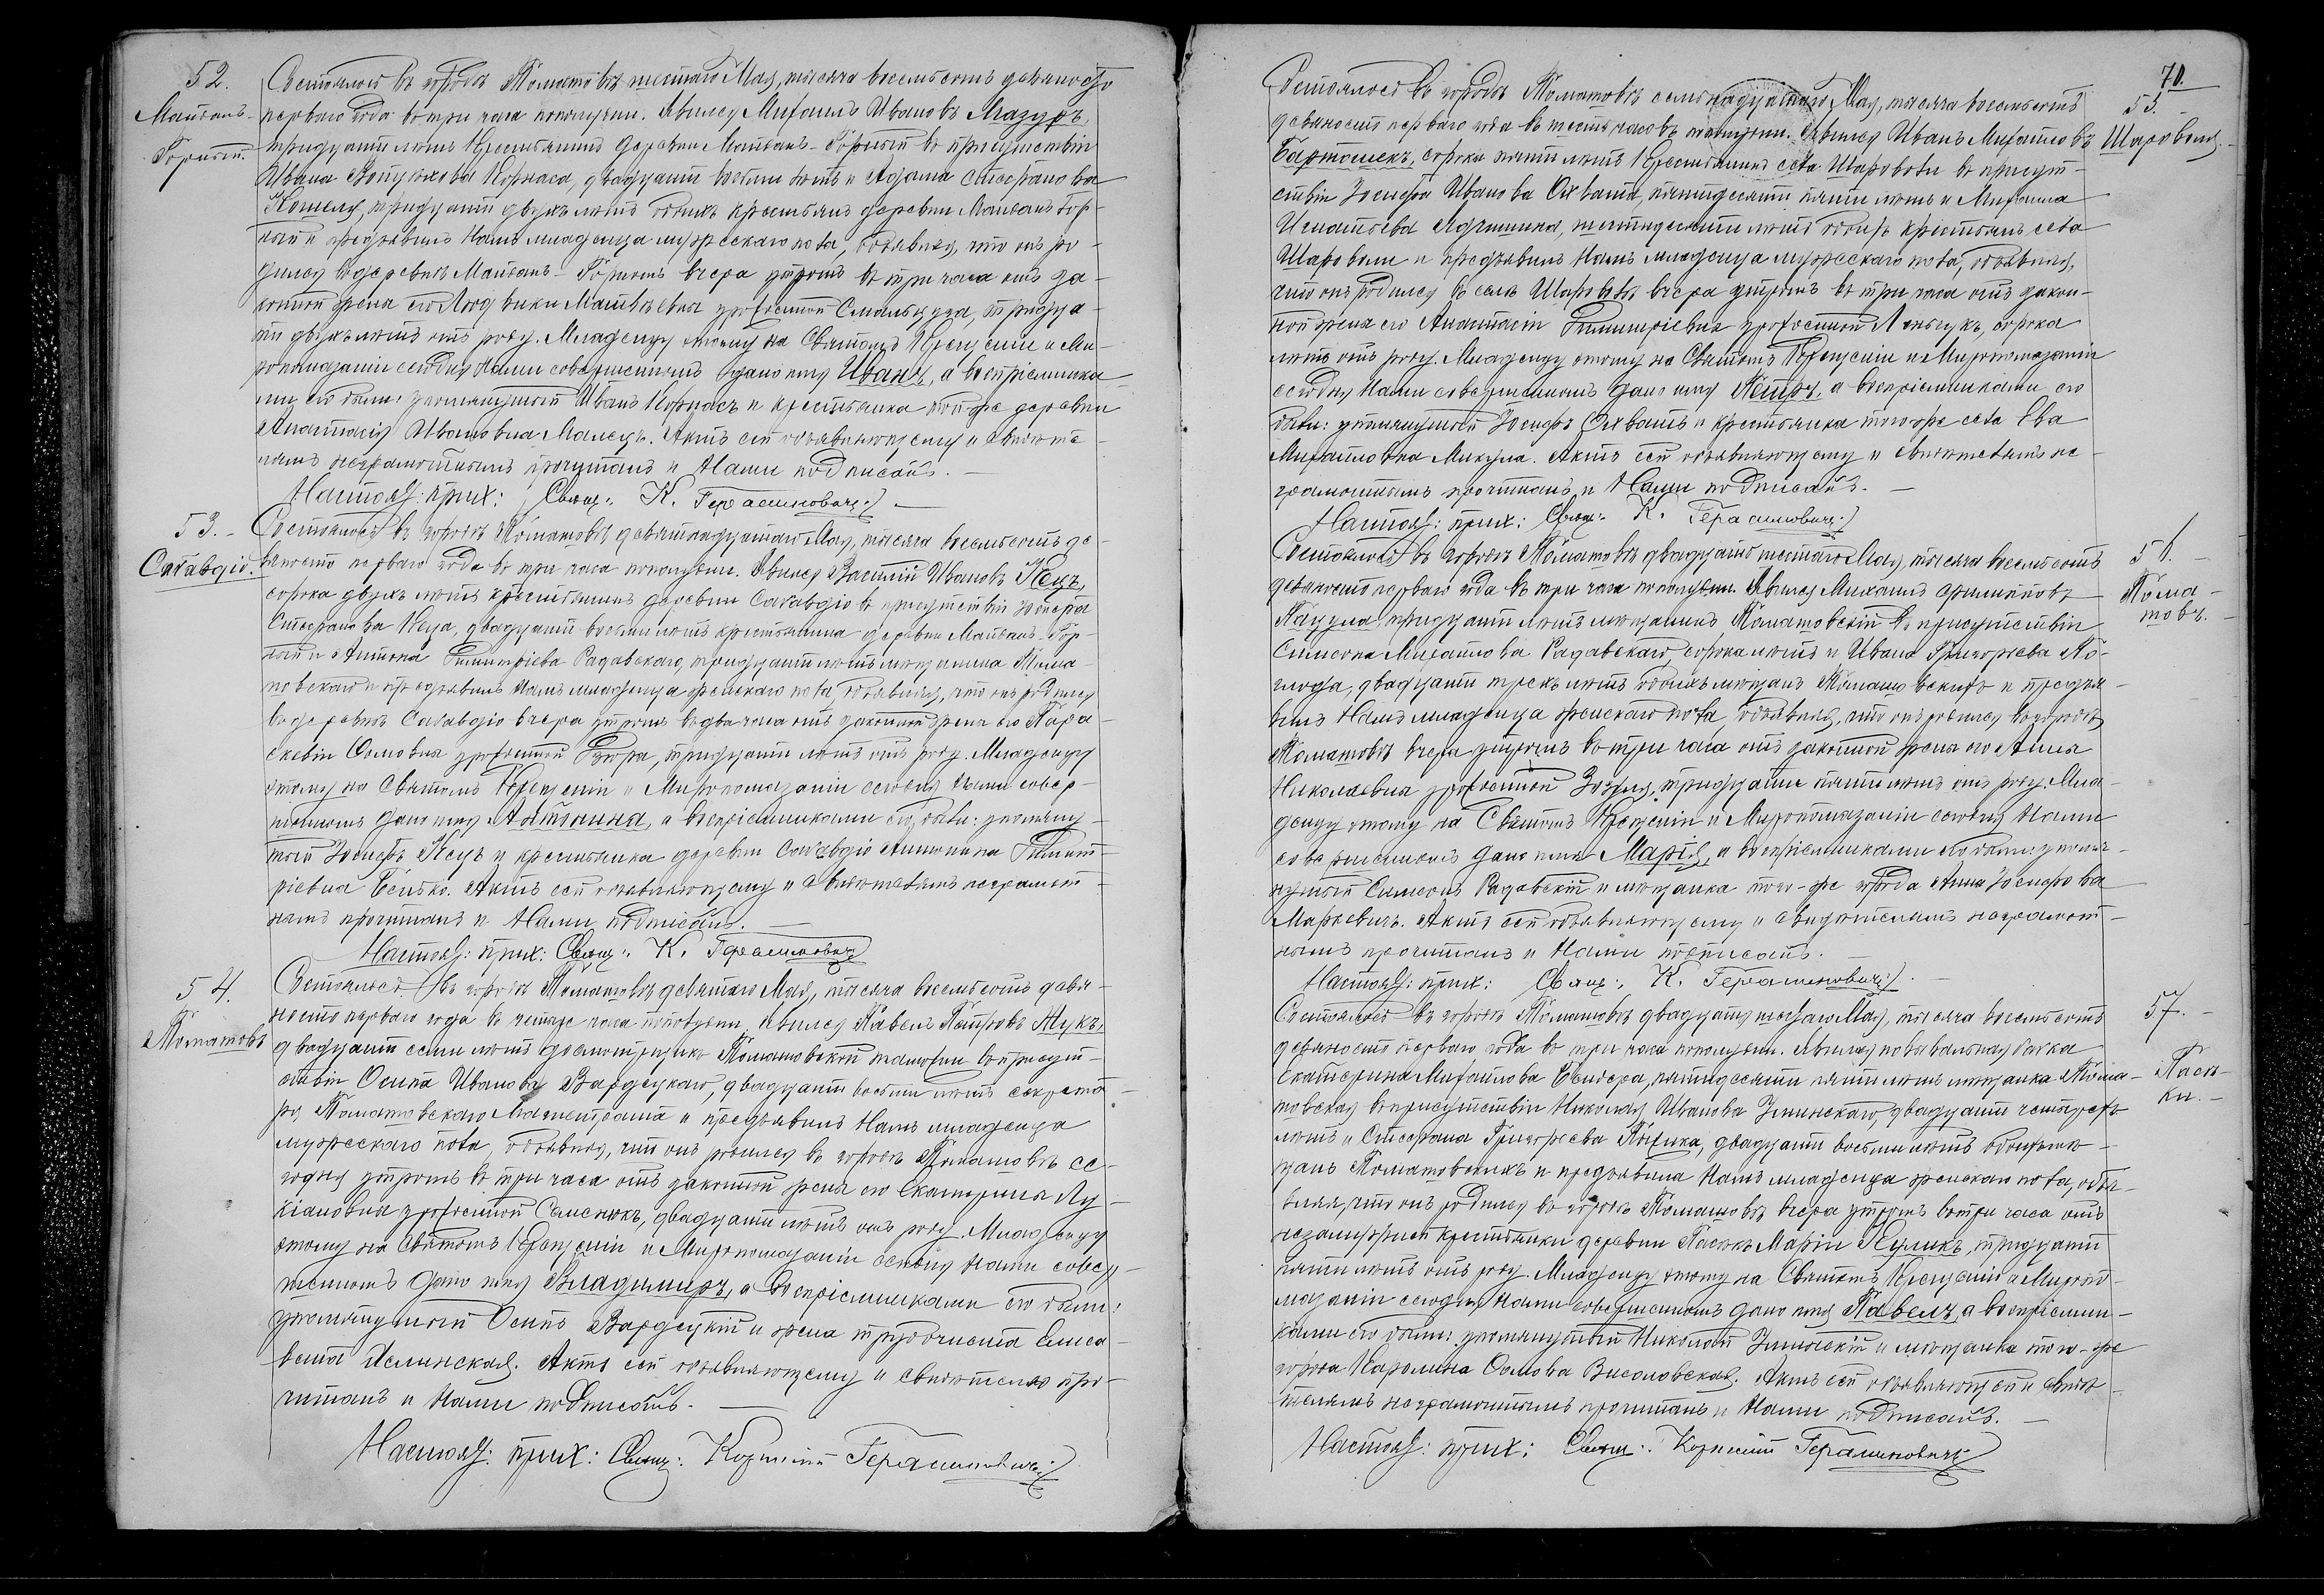 52.
Майданъ-
Горный.
Состоялось въ городѣ Томашовѣ шестаго Мая, тысяча восемьсотъ девяносто
перваго года въ три часа пополудни. Явился Михаилъ Ивановъ Мазуръ,
тридцати лѣтъ Крестьянинъ деревни Майданъ-Горный въ присутствіи
Ивана Корнаса, двадцати восьми лѣтъ и Адама Стефанова
Кошелу, тридцати двухъ лѣтъ обоихъ крестьянъ деревни Майданъ Гор-
ный и предъявилъ Намъ младенца мужескаго пола, объявляя, что онъ ро-
дился въ деревнѣ Майданъ-Горномъ вчера утромъ въ три часа отъ за-
конной жены его Людвики Матвѣевны урожденной тридца-
ти двухъ лѣтъ отъ роду. Младенцу этому на Святомъ Крещеніи и Ми-
ропомазаніи сегодня Нами совершенномъ дано имя Иванъ, а воспріемника-
ми его были: упомянутый Иванъ Корнасъ и крестьянка той-же деревни
Анастасія Ивановна Малецъ. Актъ сей объявляющему и свидѣте-
лямъ неграмотнымъ прочитанъ и Нами подписанъ. —
Настоят: прих: Свящ: К. Герасимовичъ
53.-
Сагавдіо.
Состоялось въ городѣ Томашовѣ девятнадцатаго Мая, тысяча восемьсотъ де-
вяносто перваго года въ три часа пополудни. Явился Василій Ивановъ Кецъ,
сорока двухъ лѣтъ крестьянинъ деревни въ присутствіи Іосифа
Стефанова Кеца, двадцати восьми лѣтъ крестьянина деревни Майданъ-Гор-
ный и Антона Димитріева Радавскаго, тридцати лѣтъ мѣщанина Тома-
шовскаго и предъявилъ Намъ младенца женскаго пола, объявляя, что онъ родился
въ деревнѣ вчера утромъ въ два часа отъ законной жены его Пара-
скевіи Осиповны урожденной Дзюра, тридцати лѣтъ отъ роду. Младенцу
этому на Святомъ Крещеніи и Миропомазаніи сегодня Нами совер-
шенномъ дано имя Антонина, а воспріемниками его были: упомяну-
тый Іосифъ Кецъ и крестьянка деревни Антонина Димит-
ріевна Актъ сей объявляющему и свидѣтелямъ неграмот-
нымъ прочитанъ и Нами подписанъ. —
Настоят: прих: Свящ: К. Герасимовичъ
54.
Томашовъ
Состоялось въ городѣ Томашовѣ девятаго Мая, тысяча восемьсотъ девя-
носто перваго года въ четыре часа пополудни. Явился Павелъ Петровъ Жукъ,
двадцати семи лѣтъ досмотрщикъ Томашовской таможни въ присут-
ствіи Осипа Иванова Вардецкаго, двадцати восьми лѣтъ секрета-
ря Томашовскаго Магистрата и предъявилъ Намъ младенца
мужескаго пола, объявляя, что онъ родился въ городѣ Томашовѣ се-
годня утромъ въ три часа отъ законной жены его Екатерины Лу-
кіановны урожденной Саменюкъ, двадцати лѣтъ отъ роду. Младенцу
этому на Святомъ Крещеніи и Миропомазаніи сегодня Нами совер-
шенномъ дано имя Владимиръ, а воспріемниками его были:
упомянутый Осипъ Вардецкій и жена Елиса-
вета Яслинская. Актъ сей объявляющему и свидѣтелю про-
читанъ и Нами подписанъ. —
Настоят: прих: Свящ: Корнилій Герасимовичъ
70.
55.
Шаровола.
Состоялось въ городѣ Томашовѣ семнадцатаго Мая, тысяча восемьсотъ
девяносто перваго года въ шесть часовъ пополудни. Явился Иванъ Михайловъ
Бартошекъ, сорока пяти лѣтъ Крестьянинъ села Шароволи въ присут-
ствіи Іосифа Иванова Охвата, пятидесяти пяти лѣтъ и Михаила
Игнатьева шестидесяти лѣтъ обоихъ крестьянъ села
Шароволи и предъявилъ Намъ младенца мужескаго пола, объявляя,
что онъ родился въ селѣ Шароволѣ вчера утромъ въ три часа отъ закон-
ной жены его Анастасіи Димитріевны урожденной сорока
лѣтъ отъ роду. Младенцу этому на Святомъ Крещеніи и Миропомазаніи
сегодня Нами совершенномъ дано имя Петръ, а воспріемниками его
были: упомянутый Іосифъ Охватъ и крестьянка того-же села Ева
Михайловна Микула. Актъ сей объявляющему и свидѣтелямъ не-
грамотнымъ прочитанъ и Нами подписанъ. —
Настоят: прих: Свящ: К. Герасимовичъ
56.
Тома-
шовъ.
Состоялось въ городѣ Томашовѣ двадцать шестаго Мая, тысяча восемьсотъ
девяносто перваго года въ три часа пополудни. Явился Михаилъ Филипповъ
Пацула, тридцати лѣтъ мѣщанинъ Томашовскій въ присутствіи
Симеона Михайлова Радавскаго, сорока лѣтъ и Ивана Григорьева
двадцати трехъ лѣтъ обоихъ мѣщанъ Томашовскихъ и предъя-
вилъ Намъ младенца женскаго пола, объявляя, что онъ родился въ городѣ
Томашовѣ вчера утромъ въ три часа отъ законной жены его Анны
Николаевны урожденной Зозуля, тридцати пяти лѣтъ отъ роду. Мла-
денцу этому на Святомъ Крещеніи и Миропомазаніи сегодня Нами
совершенномъ дано имя Марія, а воспріемниками его были: упомя-
нутый Симеонъ Радавскій и мѣщанка того-же города Анна Іосифова
Маркевичъ. Актъ сей объявляющему и свидѣтелямъ неграмот-
нымъ прочитанъ и Нами подписанъ. —
Настоят: прих: Свящ: К. Герасимовичъ. —
57. —
Пасѣ-
ки. —
Состоялось въ городѣ Томашовѣ двадцать Мая, тысяча восемьсотъ
девяносто перваго года въ три часа пополудни. Явилась повивальная бабка
Екатерина Михайлова пятидесяти пяти лѣтъ мѣщанка Тома-
шовская въ присутствіи Николая Иванова Зминскаго, двадцати четырехъ
лѣтъ и Стефана Григорьева двадцати восьми лѣтъ обоихъ мѣ-
щанъ Томашовскихъ и предъявила Намъ младенца женскаго пола, объя-
вляя, что онъ родился въ городѣ Томашовѣ вчера утромъ въ три часа отъ
незамужней Крестьянки деревни Пасѣкъ Маріи Куликъ, тридцати
пяти лѣтъ отъ роду. Младенцу этому на Святомъ Крещеніи и Миропо-
мазаніи сегодня Нами совершенномъ дано имя Павелъ, а воспріемни-
ками его были: упомянутый Николай Зминскій и мѣщанка того-же
города Каролина Осипова Висоловская. Актъ сей объявляющей и свидѣ-
телямъ неграмотнымъ прочитанъ и Нами подписанъ. —
Настоят: прих: Свящ: Корнилій Герасимовичъ